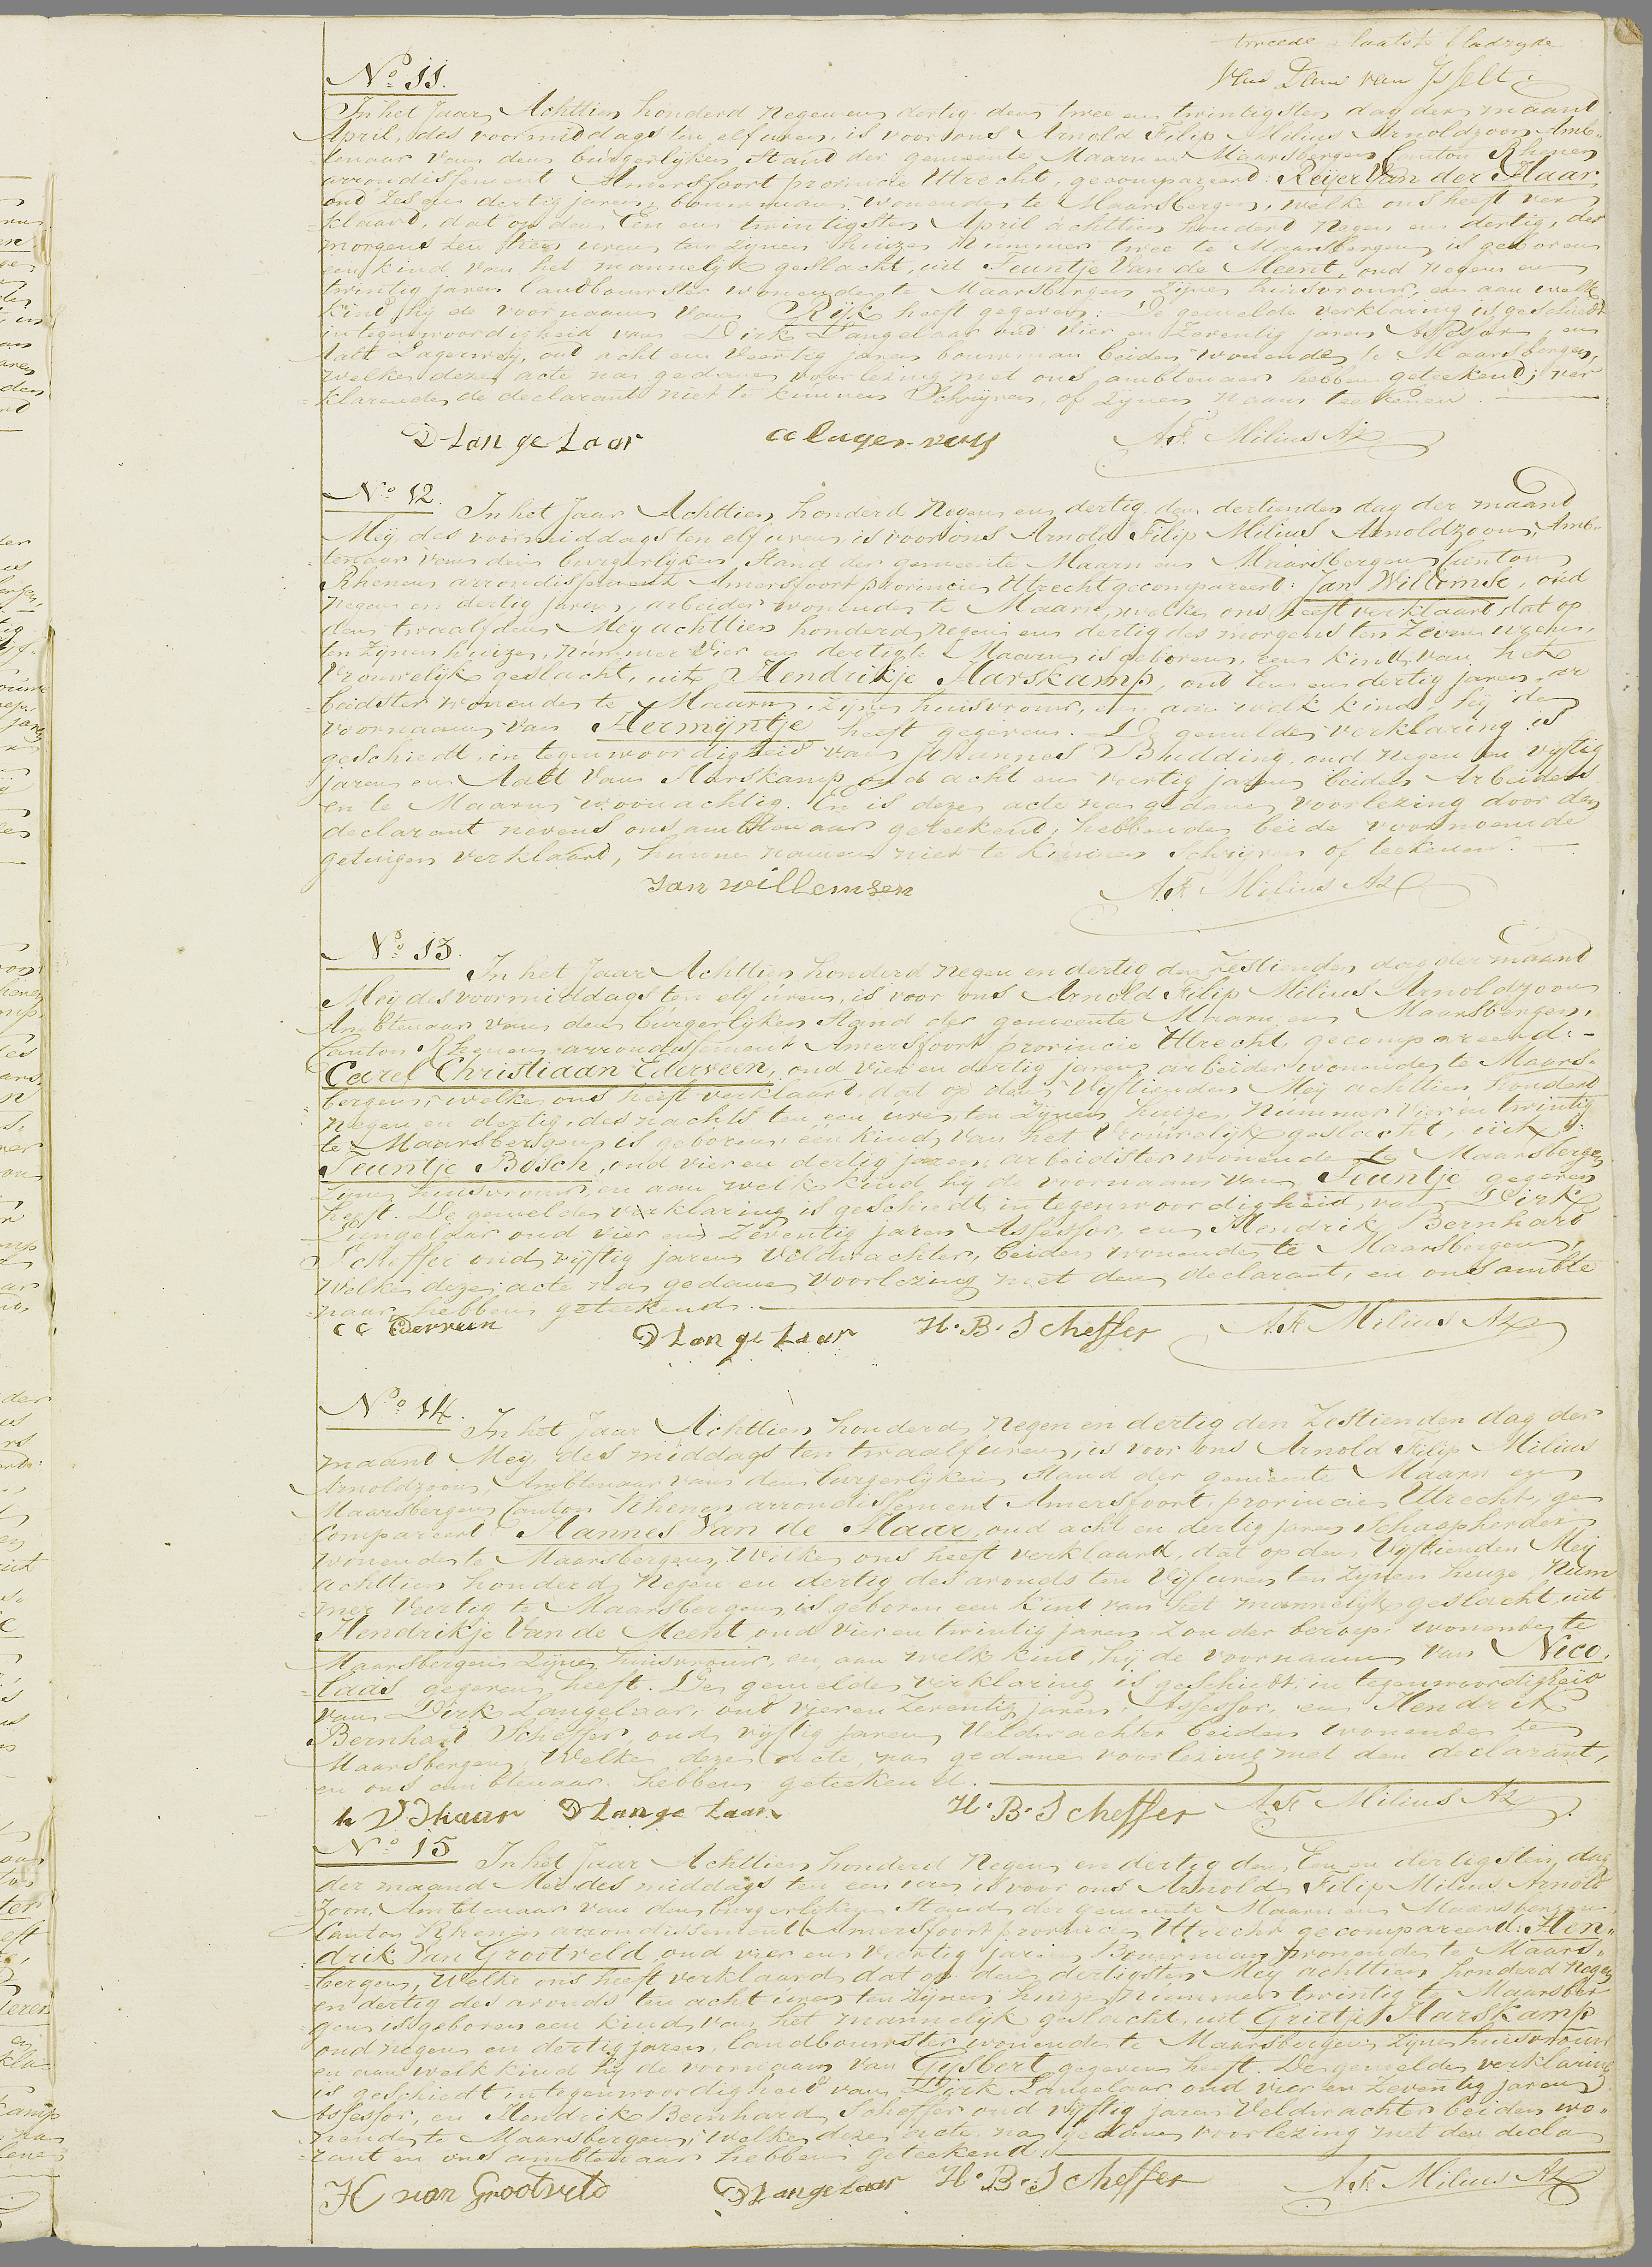 tweede & laatste bladzyde
Van Dam van Isselt
No. 11.
In het Jaar Achttien honderd Negen en dertig den twee en twintigsten dag der maand
April, des voormiddags ten elf uren, is voor ons Arnold Filip Milius Arnoldzoon Amb„
tenaar van den burgerlijken Stand der gemeente Maarn en Maarsbergen Canton Rhenen
arrondissement Amersfoort provincie Utrecht, gecompareerd: Reijer Van der Haar
oud zes en dertig jaren, bouwman, wonende te Maarsbergen, welke ons heeft ver
klaard, dat op den Een en twintigsten April achttien honderd Negen en dertig, des
morgens ten uren ten zijnen huize Nummer twee te Maarsbergen is geboren
een kind van het mannelijk geslacht, uit Teuntje Van de Meent, oud Negen en
twintig jaren landbouwster wonende te Maarsbergen zijne huisvrouw, en aan welk
kind hij de voornaam van Rijk heeft gegeven: De gemelde verklaring is geschiedt
in tegenwoordigheid van Dirk Langelaar oud vier en Zeventig jaren Assessor, en
Aalt Lagerwey, oud acht en Veertig jaren bouwman beiden wonende te Maarsbergen,
welke deze acte na gedane voorlezing met ons ambtenaar hebben geteekend; ver
klarende de declarant niet te kunnen Schrijven, of zijnen Naam teekenen.
D Lan ge Laar
a lager weij
A.F. Milius Az
No. 12.
In het Jaar Achttien honderd Negen en dertig den dertienden dag der maand
Meij, des voormiddags ten elf uren, is voor ons Arnold Filip Milius Arnoldzoon, Amb„
tenaar van den burgerlijken Stand der gemeente Maarn en Maarsbergen Canton
Rhenen arrondissement Amersfoort provincie Utrecht gecompareerd: Jan Willemse, oud
Negen en dertig jaren, arbeider wonende te Maarn, welke ons heeft verklaard, dat op
den twaalfden Meij achttien honderd Negen en dertig des morgens ten Zeven uren,
ten zijnen huize, Nummer Vier en dertig te Maarn is geboren, een kind van het
Vrouwelijk geslacht, uit Hendrikje Harskamp, oud Een en dertig jaren, ar
beidster wonende te Maarn, zijne huisvrouw, en aan welk kind hij den
voornaam van Hermijntje heeft gegeven. De gemelde verklaring is
geschiedt, in tegenwoordigheid van Johannes Budding, oud Negen en vijftig
jaren en Aalt Van Harskamp oud acht en veertig jaren beiden Arbeiders
en te Maarn woonachtig. En is deze acte na gedane, voorlezing door den
declarant nevens ons ambtenaar geteekend, hebbende beide voornoemde
getuigen verklaard, hunne namen niet te kunnen Schrijven of teekenen.
Jan willemsen
A.F. Milius Az
No. 13.
In het Jaar Achttien honderd Negen en dertig den Zestienden dag der maand
Meij des voormiddags ten elf uren, is voor ons Arnold Filip Milius Arnoldzoon
Ambtenaar van den burgerlijken Stand der gemeente Maarn en Maarsbergen,
Canton Rhenen arrondissement Amersfoort provincie Utrecht, gecompareerd:
Carel Christiaan Ederveen, oud Vier en dertig jaren, arbeider wonende te Maars„
bergen, welke ons heeft verklaard, dat op den Vijftienden Meij achttien honderd
negen en dertig, des nachts ten een ure, ten zijnen huize, Nummer Vier en twintig
te Maarsbergen, is geboren, een kind, van het Vrouwelijk geslacht, uit
Teuntje Bosch, oud vier en dertig jaren, arbeidster wonende te Maarsbergen
Zijne huisvrouw, en aan welk kind hij de voornaam van Teuntje gegeven
heeft. De gemelde verklaring is geschiedt, in tegenwoordigheid, van Dirk
Langelaar oud vier en Zeventig jaren Assessor, en Hendrik Bernhard
Scheffer oud vijftig jaren Veldwachter, beiden wonende te Maarsbergen,
Welke deze acte na gedane voorlezing met den declarant, en ons ambte
naar hebben geteekend.
C C Ederveen
D Lan ge Laar
H. B. Scheffer
A.F. Milius Az
No. 14.
In het Jaar Achttien honderd, Negen en dertig den Zestienden dag der
maand Meij des middags ten twaalf uren, is voor ons Arnold Filip Milius
Arnoldzoon, Ambtenaar van den burgerlijken Stand der gemeente Maarn en
Maarsbergen Canton Rhenen arrondissement Amersfoort, provincie Utrecht, ge
compareerd: Hannes Van de Haar, oud acht en dertig jaren Schaapherder
wonende te Maarsbergen, Welke ons heeft verklaard, dat op den Vijftienden Meij
achttien honderd Negen en dertig des avonds ten Vijf uren ten zijnen huize, Num
mer Veertig te Maarsbergen, is geboren een kind van het mannelijk geslacht, uit
Hendrikje Van de Meent, oud vier en twintig jaren, Zonder beroep, wonende te
Maarsbergen zijne huisvrouw, en aan welk kind, hij de voornaam van Nico„
laas gegeven heeft. De gemelde verklaring is geschiedt, in tegenwoordigheid
van Dirk Langelaar, oud vier en Zeventig jaren, Assessor, en Hendrik
Bernhard Scheffer, oud vijftig jaren, Veldwachter beiden wonende te
Maarsbergen, Welke deze acte, na gedane voorlezing met den declarant,
en ons ambtenaar hebben geteekend.
h V D haar
D Lange Laar
H. B. Scheffer
A.F. Milius Az
No. 15
In het Jaar Achttien honderd Negen en dertig den Een en dertigsten dag
der maand Mei des middags ten een ure is voor ons Arnold Filip Milius Arnold
Zoon, Ambtenaar van den burgerlijken Stand der gemeente Maarn en Maarsbergen
Canton Rhenen arrondissement Amersfoort provincie Utrecht gecompareerd: Hen„
drik Van Grootveld, oud vier en Veertig jaren, Bouwman, wonende te Maars„
bergen, Welke ons heeft verklaard dat op den dertigsten Meij achttien honderd Negen
en dertig des avonds ten acht uren ten zijnen huize, Nummer twintig te Maarsber
gen is geboren een kind van het mannelijk geslacht, uit Grietje Harskamp
oud negen en dertig jaren, landbouwster wonende te Maarsbergen zijne huisvrouw
en aan welk kind hij de voornaam van Gijsbert gegeven heeft. De gemelde verklaring
is geschiedt in tegenwoordigheid van Dirk Langelaar oud vier en Zeventig jaren
Assessor, en Hendrik Bernhard Scheffer oud vijftig jaren Veldwachter beiden wo„
nende te Maarsbergen, Welke deze acte na gedane voorlezing met den decla
rant en ons ambtenaar hebben geteekend.
H van Grootveld
D Langelaar
H. B. Scheffer
A.F. Milius Az